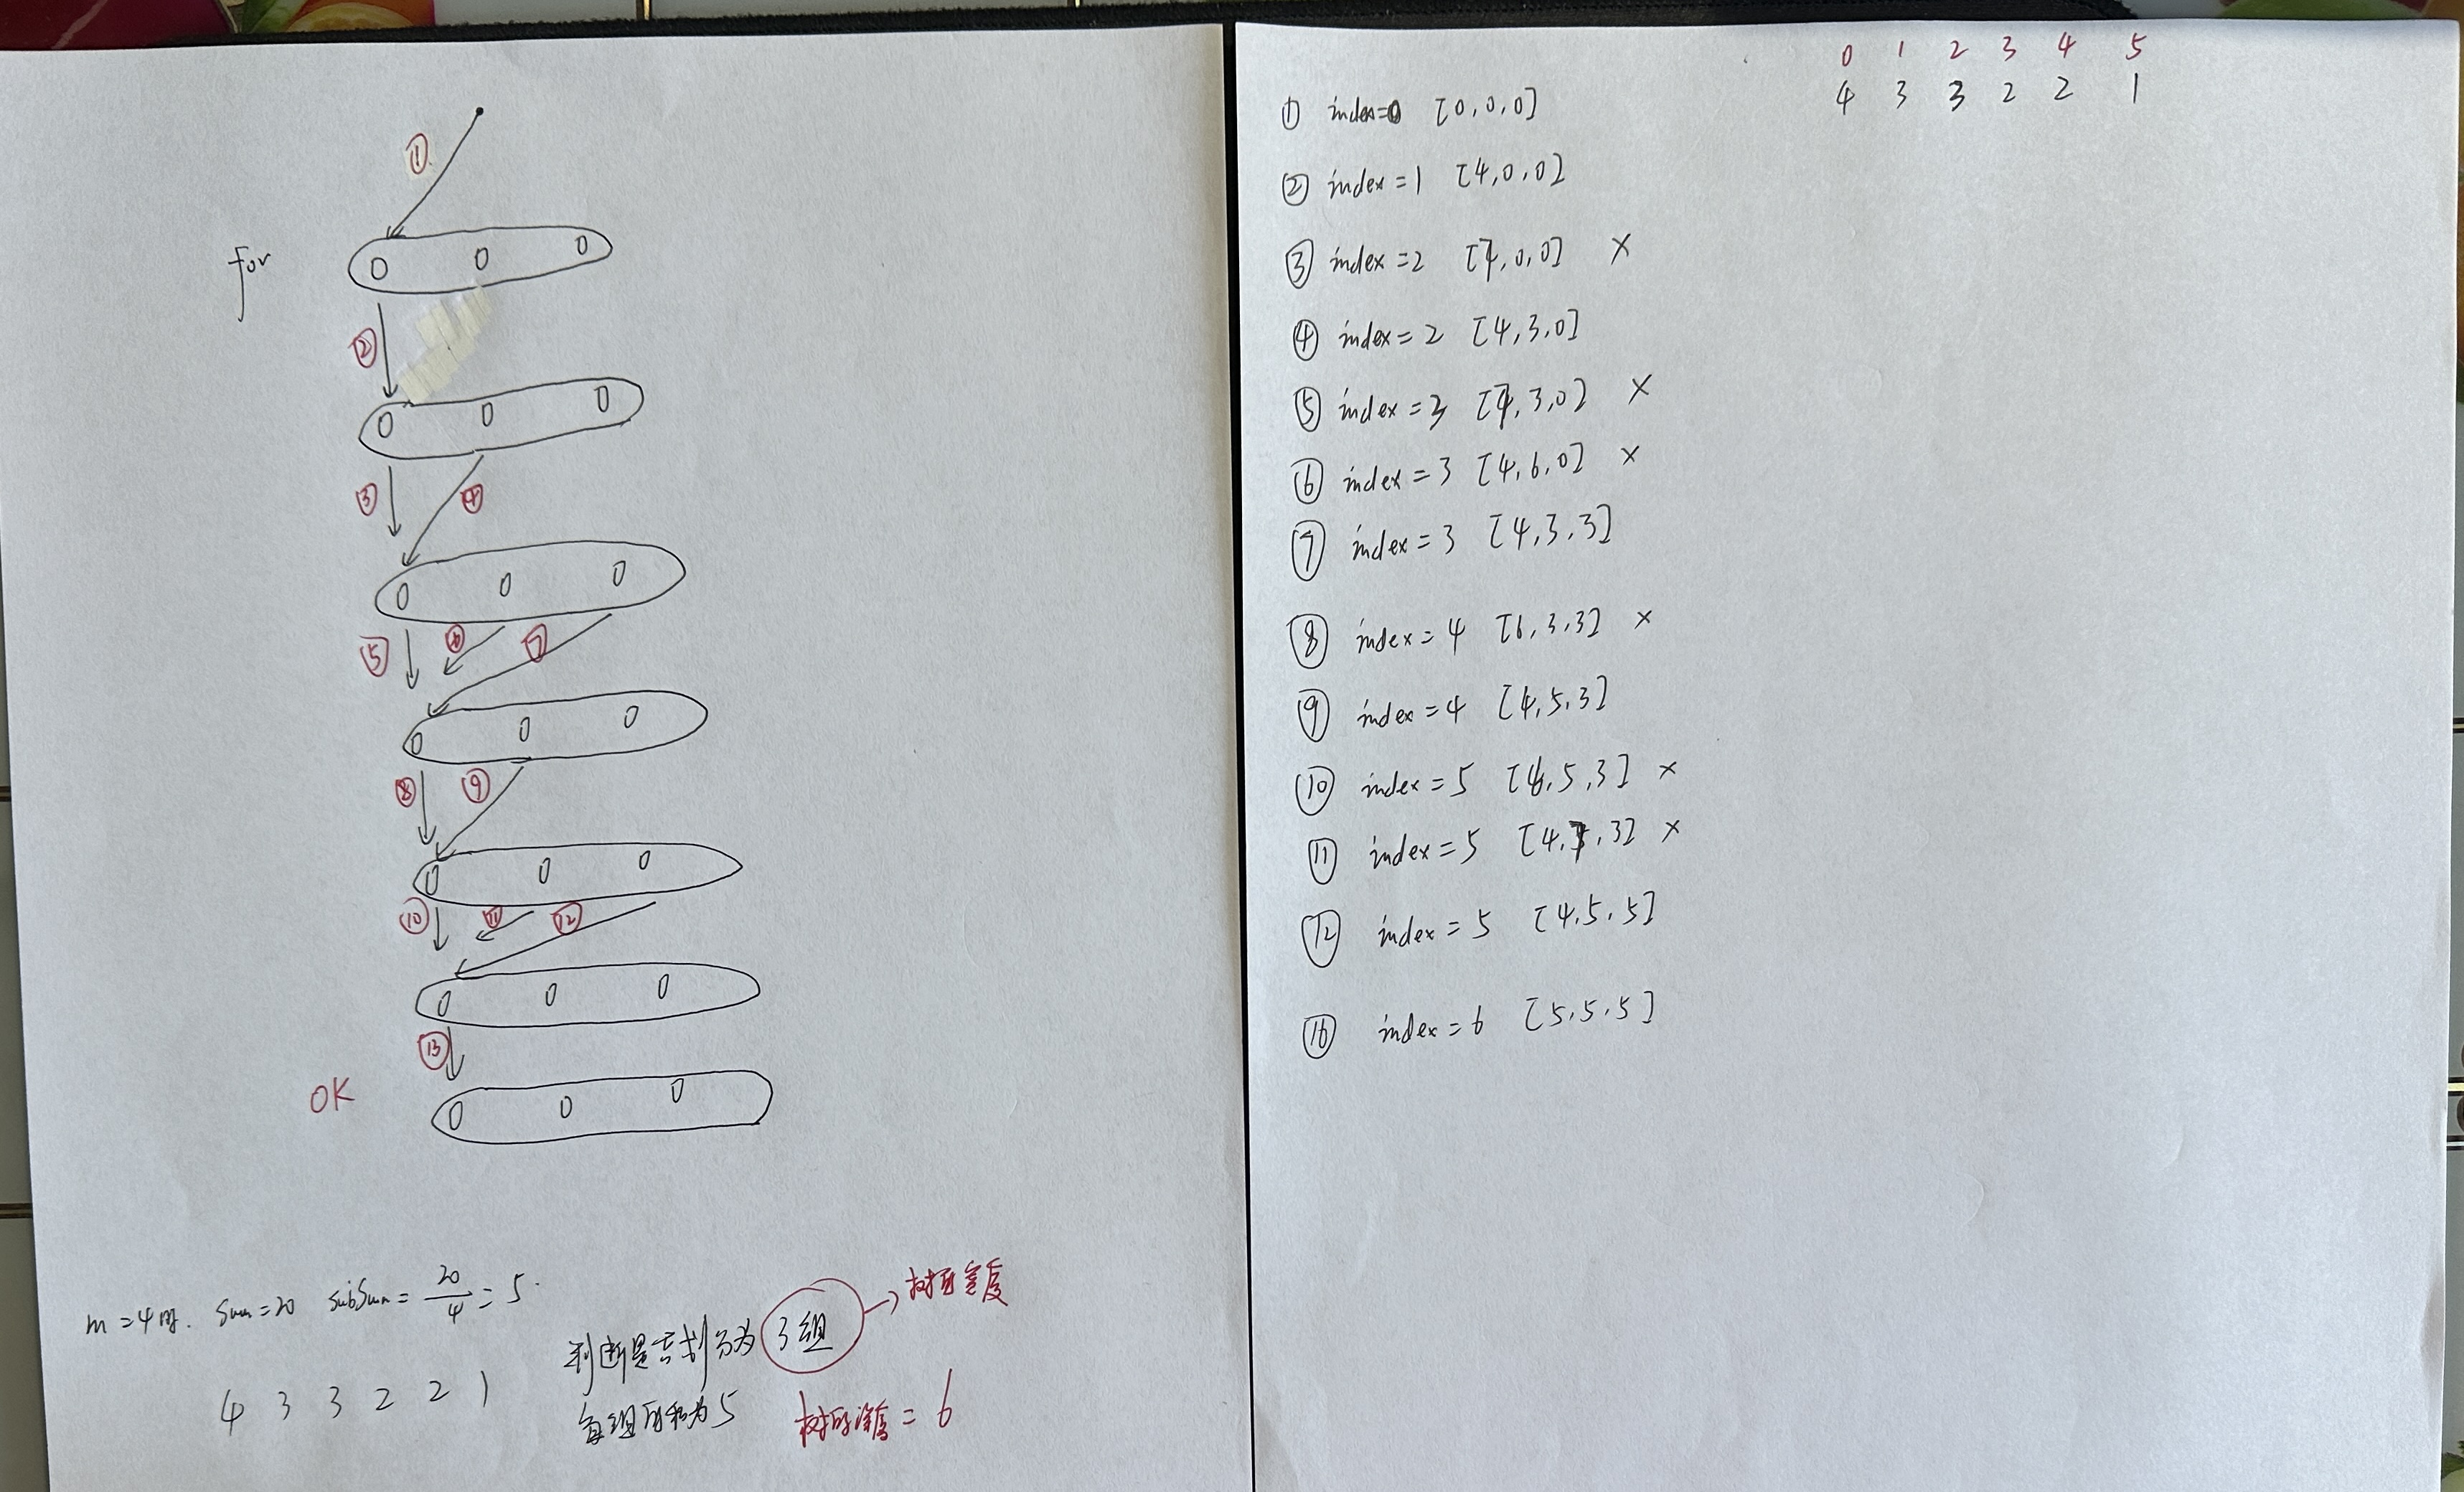 ①
for 0 0 0
②
0 0 0
③ ④
0 0 0
⑤ ⑥ ⑦
0 0 0
⑧ ⑨
0 0 0
⑩ ⑪ ⑫
0 0 0
⑬
OK
0 0 0
m=4时. Sum=20 subSum=20/4=5.
判断是否划分为3组 → 树的宽度
4 3 3 2 2 1
每组的和为5
树的深度=6
0 1 2 3 4 5
4 3 3 2 2 1
① index=0 [0,0,0]
② index=1 [4,0,0]
③ index=2 [7,0,0] ×
④ index=2 [4,3,0]
⑤ index=3 [7,3,0] ×
⑥ index=3 [4,6,0] ×
⑦ index=3 [4,3,3]
⑧ index=4 [6,3,3] ×
⑨ index=4 [4,5,3]
⑩ index=5 [6,5,3] ×
⑪ index=5 [4,7,3] ×
⑫ index=5 [4,5,5]
⑯ index=6 [5,5,5]